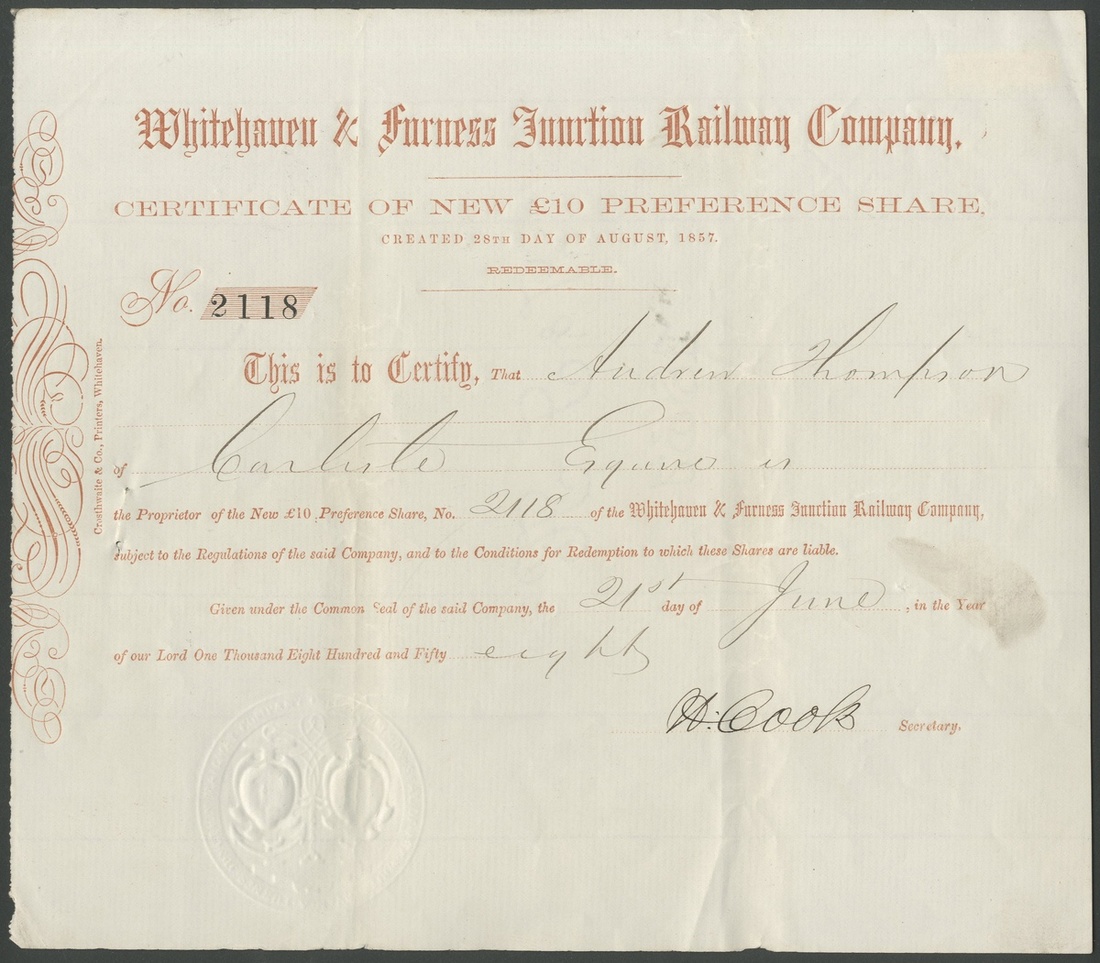 Whitehaven & Furness Junction Railway Company.
CERTIFICATE OF NEW £10 PREFERENCE SHARE,
CREATED 28TH DAY OF AUGUST, 1857.
REDEEMABLE.
No. 2118
This is to Certify, That Andrew Thompson
of Carlisle Esquire is
the Proprietor of the New £10 Preference Share, No. 2118 of the Whitehaven & Furness Junction Railway Company,
subject to the Regulations of the said Company, and to the Conditions for Redemption to which these Shares are liable.
Given under the Common Seal of the said Company, the 21st day of June, in the Year
of our Lord One Thousand Eight Hundred and Fifty eight
H. Cook Secretary.
Crosthwaite & Co., Printers, Whitehaven.